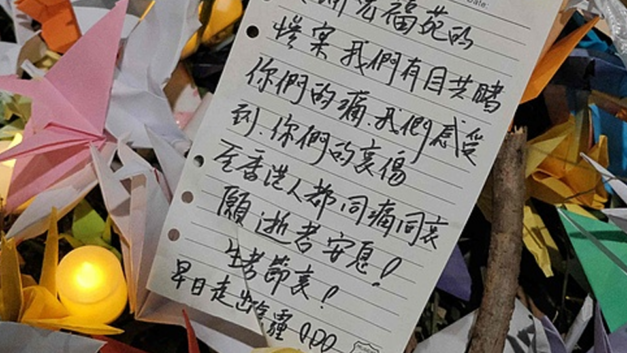 宏福苑的
慘案我們有目共睹
你們的痛我們感受
到.你們的哀傷
全香港人都同痛同哀
願逝者安息!
生者節哀!
早日走出陰霾!!!